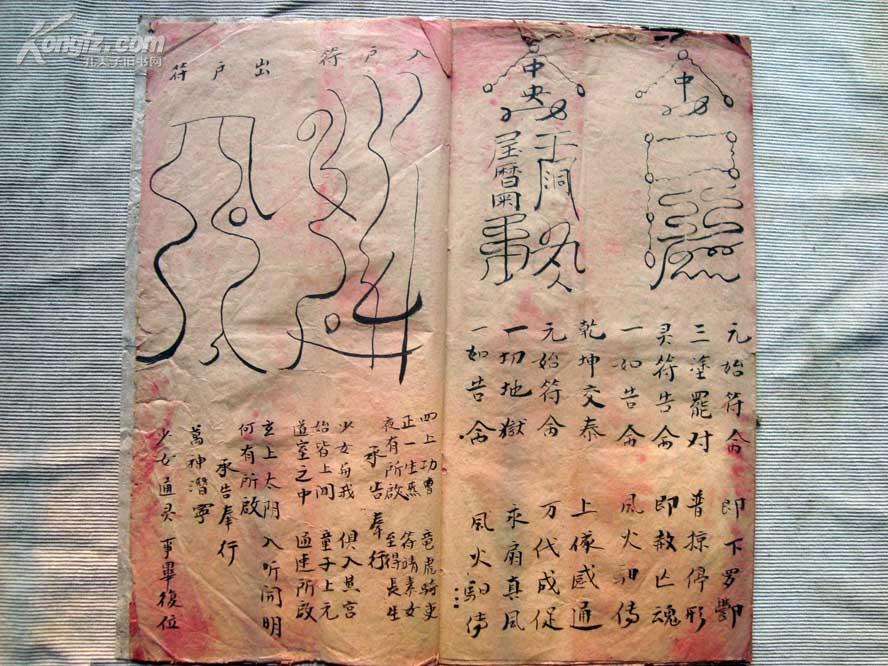 Kongfz.com
孔夫子旧书网
中
中央
元始符命 即下罗酆
三塗罷对 普掠停形
灵符告命 即赦亡魂
一如告命 風火驲傳
乾坤交泰 上儀感通
元始符命 万代成促
一切地獄 永扇真風
一如告命 風火驲傳
入户符
出户符
四上功曹 竜虎騎吏
正一生炁 侍靖素女
夜有所啟 至得長生
承告奉行
少女与我 俱入
始皆上闻 童子上元
道室之中 通達所啟
玄上太阴 入听闻明
何有所啟
承告奉行
萬神潛寧
少女通灵 事畢復位